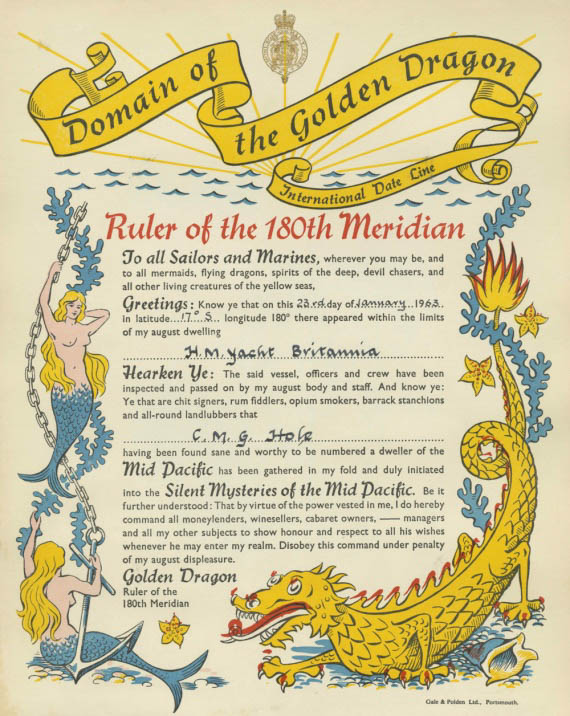 Domain of
the Golden Dragon
International Date Line
Ruler of the 180th Meridian
To all Sailors and Marines, wherever you may be, and
to all mermaids, flying dragons, spirits of the deep, devil chasers, and
all other living creatures of the yellow seas,
Greetings: Know ye that on this 23rd day of January 1963
in latitude 17° S longitude 180° there appeared within the limits
of my august dwelling
H.M. Yacht Britannia
Hearken Ye: The said vessel, officers and crew have been
inspected and passed on by my august body and staff. And know ye:
Ye that are chit signers, rum fiddlers, opium smokers, barrack stanchions
and all-round landlubbers that
C. M. G.
having been found sane and worthy to be numbered a dweller of the
Mid Pacific has been gathered in my fold and duly initiated
into the Silent Mysteries of the Mid Pacific. Be it
further understood: That by virtue of the power vested in me, I do hereby
command all moneylenders, winesellers, cabaret owners, —— managers
and all my other subjects to show honour and respect to all his wishes
whenever he may enter my realm. Disobey this command under penalty
of my august displeasure.
Golden Dragon
Ruler of the
180th Meridian
Gale & Polden Ltd., Portsmouth.